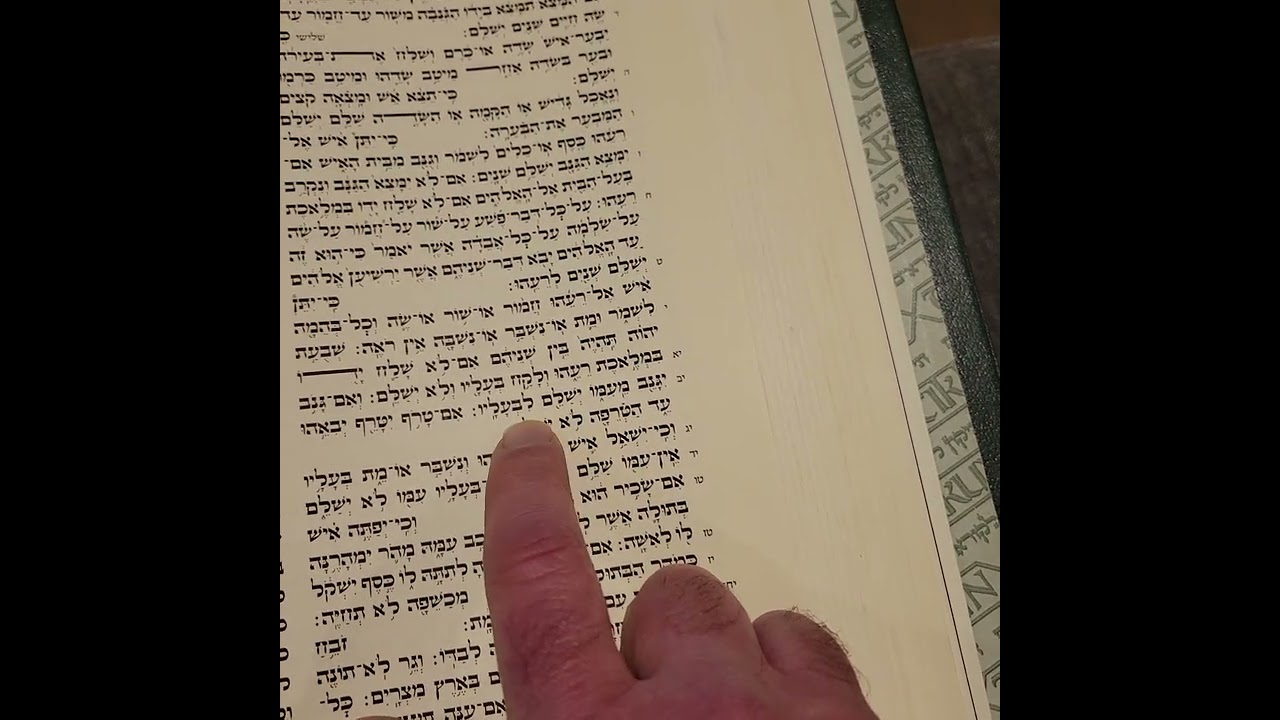 הִמָּצֵא תִמָּצֵא בְיָדוֹ הַגְּנֵבָה מִשּׁוֹר עַד־חֲמוֹר עַד־
שֶׂה חַיִּים שְׁנַיִם יְשַׁלֵּם: שלישי
יַבְעֶר־אִישׁ שָׂדֶה אוֹ־כֶרֶם וְשִׁלַּח אֶת־בְּעִירֹה
וּבִעֵר בִּשְׂדֵה אַחֵר מֵיטַב שָׂדֵהוּ וּמֵיטַב כַּרְמוֹ
ה יְשַׁלֵּם: כִּי־תֵצֵא אֵשׁ וּמָצְאָה קֹצִים
וְנֶאֱכַל גָּדִישׁ אוֹ הַקָּמָה אוֹ הַשָּׂדֶה שַׁלֵּם יְשַׁלֵּם
ו הַמַּבְעִר אֶת־הַבְּעֵרָה: כִּי־יִתֵּן אִישׁ אֶל־
רֵעֵהוּ כֶּסֶף אוֹ־כֵלִים לִשְׁמֹר וְגֻנַּב מִבֵּית הָאִישׁ אִם־
ז יִמָּצֵא הַגַּנָּב יְשַׁלֵּם שְׁנָיִם: אִם־לֹא יִמָּצֵא הַגַּנָּב וְנִקְרַב
בַּעַל־הַבַּיִת אֶל־הָאֱלֹהִים אִם־לֹא שָׁלַח יָדוֹ בִּמְלֶאכֶת
ח רֵעֵהוּ: עַל־כָּל־דְּבַר־פֶּשַׁע עַל־שׁוֹר עַל־חֲמוֹר עַל־שֶׂה
עַל־שַׂלְמָה עַל־כָּל־אֲבֵדָה אֲשֶׁר יֹאמַר כִּי־הוּא זֶה
עַד הָאֱלֹהִים יָבֹא דְּבַר־שְׁנֵיהֶם אֲשֶׁר יַרְשִׁיעֻן אֱלֹהִים
ט יְשַׁלֵּם שְׁנַיִם לְרֵעֵהוּ: כִּי־יִתֵּן
אִישׁ אֶל־רֵעֵהוּ חֲמוֹר אוֹ־שׁוֹר אוֹ־שֶׂה וְכָל־בְּהֵמָה
י לִשְׁמֹר וּמֵת אוֹ־נִשְׁבַּר אוֹ־נִשְׁבָּה אֵין רֹאֶה: שְׁבֻעַת
יְהוָה תִּהְיֶה בֵּין שְׁנֵיהֶם אִם־לֹא שָׁלַח יָדוֹ
יא בִּמְלֶאכֶת רֵעֵהוּ וְלָקַח בְּעָלָיו וְלֹא יְשַׁלֵּם: וְאִם־גָּנֹב
יב יִגָּנֵב מֵעִמּוֹ יְשַׁלֵּם לִבְעָלָיו: אִם־טָרֹף יִטָּרֵף יְבִאֵהוּ
עֵד הַטְּרֵפָה לֹא
יג וְכִי־יִשְׁאַל אִישׁ וְנִשְׁבַּר אוֹ־מֵת בְּעָלָיו
יד אֵין־עִמּוֹ שַׁלֵּם בְּעָלָיו עִמּוֹ לֹא יְשַׁלֵּם
טו אִם־שָׂכִיר הוּא וְכִי־יְפַתֶּה אִישׁ
בְּתוּלָה אֲשֶׁר עִמָּהּ מָהֹר יִמְהָרֶנָּה
טז לּוֹ לְאִשָּׁה: אִם לְתִתָּהּ לוֹ כֶּסֶף יִשְׁקֹל
יז כְּמֹהַר הַבְּתוּלֹת מְכַשֵּׁפָה לֹא תְחַיֶּה:
יח זֹבֵחַ
לְבַדּוֹ: וְגֵר לֹא־תוֹנֶה
בְּאֶרֶץ מִצְרָיִם: כָּל־
אִם־עַנֵּה